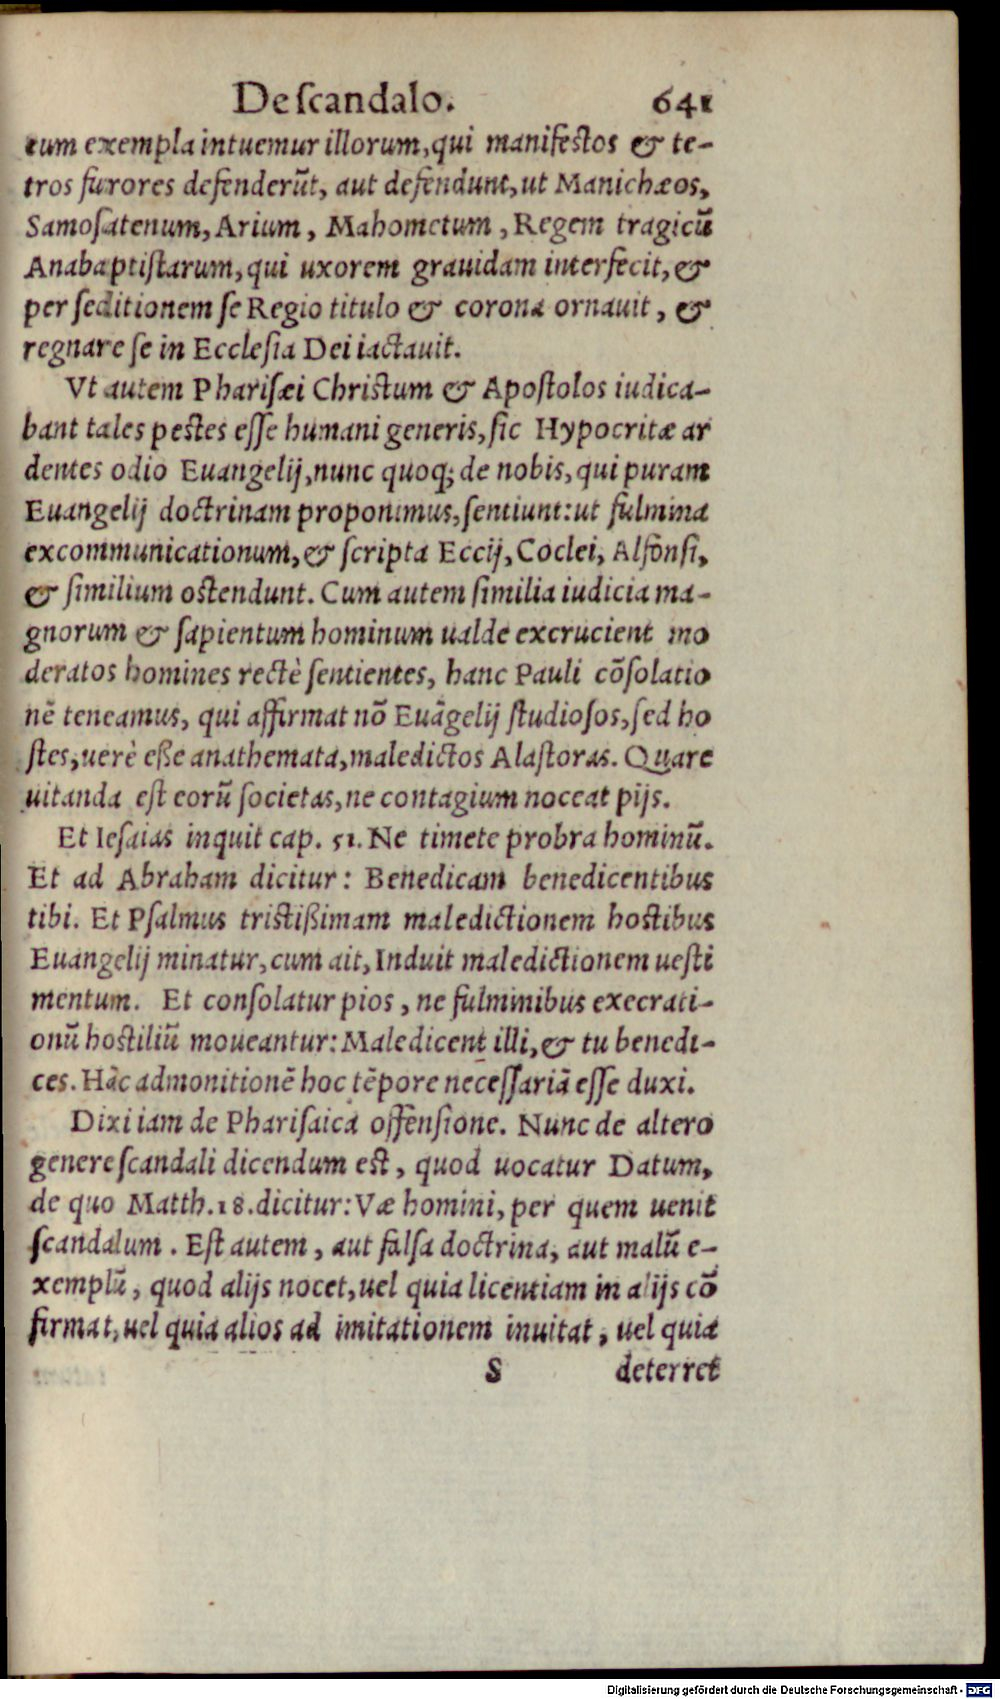 De scandalo. 641
cum exempla intuemur illorum, qui manifestos & te-
tros furores defenderūt, aut defendunt, ut Manichæos,
Samoſatenum, Arium, Mahometum, Regem tragicū
Anabaptiſtarum, qui uxorem grauidam interfecit, &
per ſeditionem ſe Regio titulo & corona ornauit, &
regnare ſe in Eccleſia Dei iactauit.
Vt autem Phariſæi Chriſtum & Apoſtolos iudica-
bant tales peſtes eſſe humani generis, ſic Hypocritæ ar
dentes odio Euangelij, nunc quoq; de nobis, qui puram
Euangelij doctrinam proponimus, ſentiunt: ut fulmina
excommunicationum, & ſcripta Eccij, Coclei, Alfonſi,
& ſimilium oſtendunt. Cum autem ſimilia iudicia ma-
gnorum & ſapientum hominum ualde excrucient mo
deratos homines rectè ſentientes, hanc Pauli cōſolatio
nē teneamus, qui affirmat nō Euāgelij ſtudioſos, ſed ho
ſtes, uerè eße anathemata, maledictos Alaſtoras. Quare
uitanda eſt eorū ſocietas, ne contagium noceat pijs.
Et Ieſaias inquit cap. 51. Ne timete probra hominū.
Et ad Abraham dicitur: Benedicam benedicentibus
tibi. Et Pſalmus triſtißimam maledictionem hoſtibus
Euangelij minatur, cum ait, Induit maledictionem ueſti
mentum. Et conſolatur pios, ne fulminibus execrati-
onū hoſtiliū moueantur: Maledicent illi, & tu benedi-
ces. Hāc admonitionē hoc tēpore neceſſariā eſſe duxi.
Dixi iam de Phariſaica offenſione. Nunc de altero
genere ſcandali dicendum eſt, quod uocatur Datum,
de quo Matth. 18. dicitur: Væ homini, per quem uenit
ſcandalum. Eſt autem, aut falſa doctrina, aut malū e-
xemplū, quod alijs nocet, uel quia licentiam in alijs cō
firmat, uel quia alios ad imitationem inuitat, uel quia
S deterret
Digitalisierung gefördert durch die Deutsche Forschungsgemeinschaft - DFG